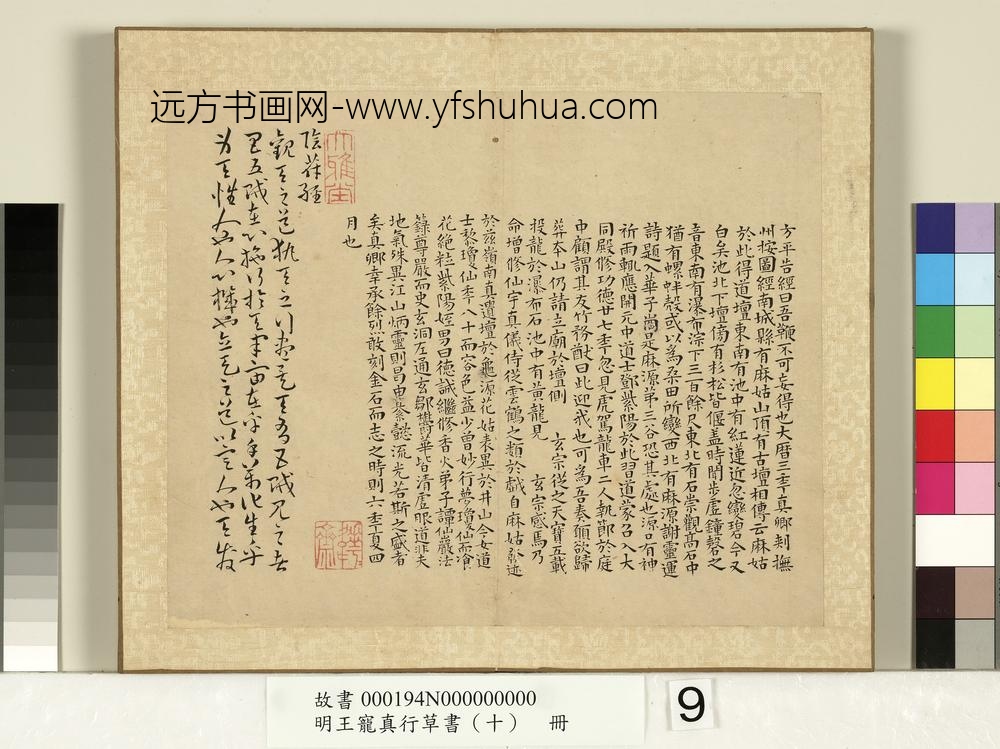 远方书画网-www.yfshuhua.com
方平告經曰吾鞭不可妄得也大曆三年真卿刺撫
州按圖經南城縣有麻姑山頂有古壇相傳云麻姑
於此得道壇東南有池中有紅蓮近忽變碧今又
白矣池北下壇傍有杉松皆偃蓋時聞步虛鐘磬之
音東南有瀑布淙下三百餘尺東北有石崇觀高石中
猶有螺蚌殼或以為桑田所變西北有麻源謝靈運
詩題入華子崗是麻源第三谷恐其處也源口有神
祈雨輒應開元中道士鄧紫陽於此習道蒙召入大
同殿修功德廿七年忽見虎駕龍車二人執節於庭
中顧謂其友竹務猷曰此迎我也可為吾奏願欲歸
葬本山仍請立廟於壇側 玄宗從之天寶五載
投龍於瀑布石池中有黃龍見 玄宗感焉乃
命增修仙宇真儀侍從雲鶴之類於戲自麻姑發迹
於茲嶺南真遺壇於龜源花姑表異於井山今女道
士黎瓊仙年八十而容色益少曾妙行夢瓊仙而飡
花絕粒紫陽姪男曰德誠繼修香火弟子譚仙巖法
籙尊嚴而史玄洞左通玄鄒鬱華皆清虛服道非夫
地氣殊異江山炳靈則曷由纂懿流光若斯之盛者
矣真卿幸承餘烈敢刻金石而志之時則六年夏四
月也
大雅堂
陰符經
觀天之道執天之行盡矣天有五賊見之者
昌五賊在心施行於天宇宙在乎手萬化生乎
身天性人也人心機也立天之道以定人也天發
故書 000194N000000000
明王寵真行草書（十） 冊
9